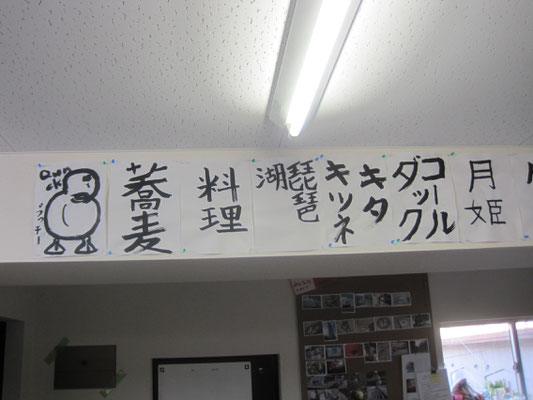 蕎麦
料理
琵琶
湖
キタ
キツネ
コール
ダック
月
姫